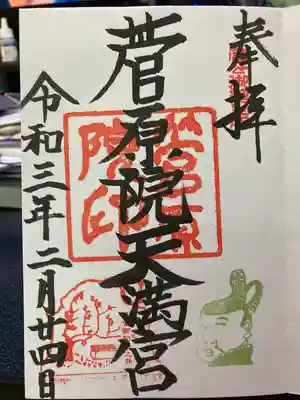 奉拝
菅原院天満宮
令和三年二月廿四日
菅原院印